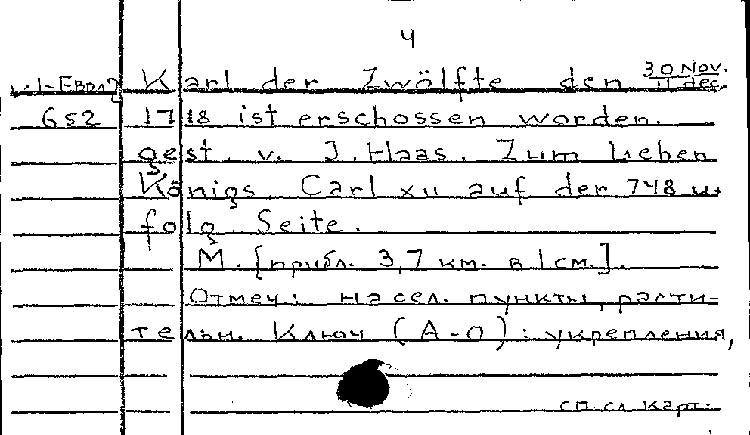 4
Karl der Zwölfte den 30 Nov. 11 dec.
652 1718 ist erschossen worden.
gest. v. J. Haas. Zum Leben
Königs Carl XII auf der 748 u.
folg Seite.
М. [прибл. 3,7 км. в 1 см.].
Отмеч: насел. пункты, расти-
тельн. Ключ (А-О): укрепления,
сп сл карт.